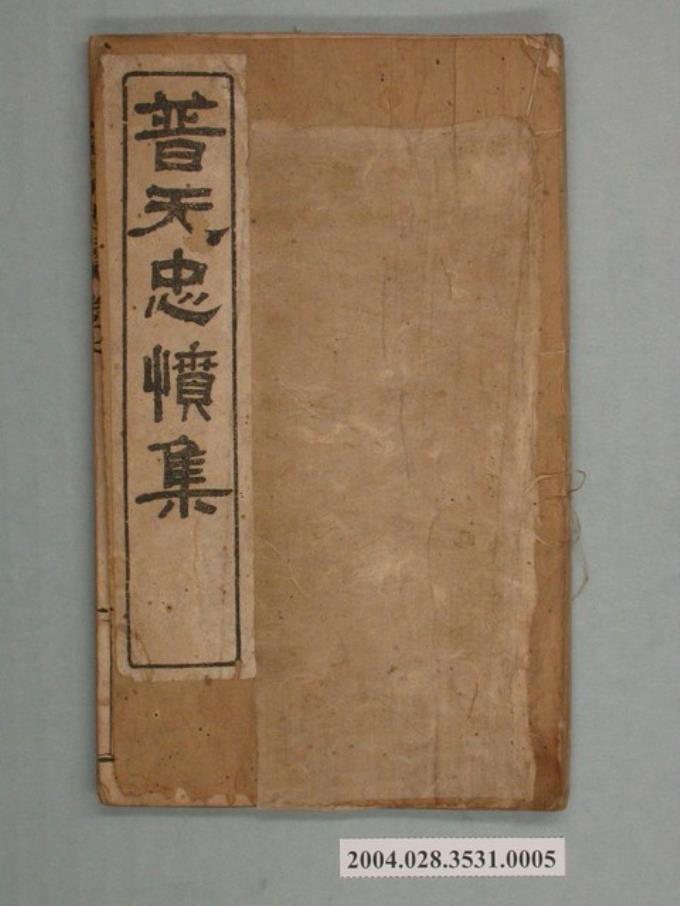 普天忠憤集
2004.028.3531.0005